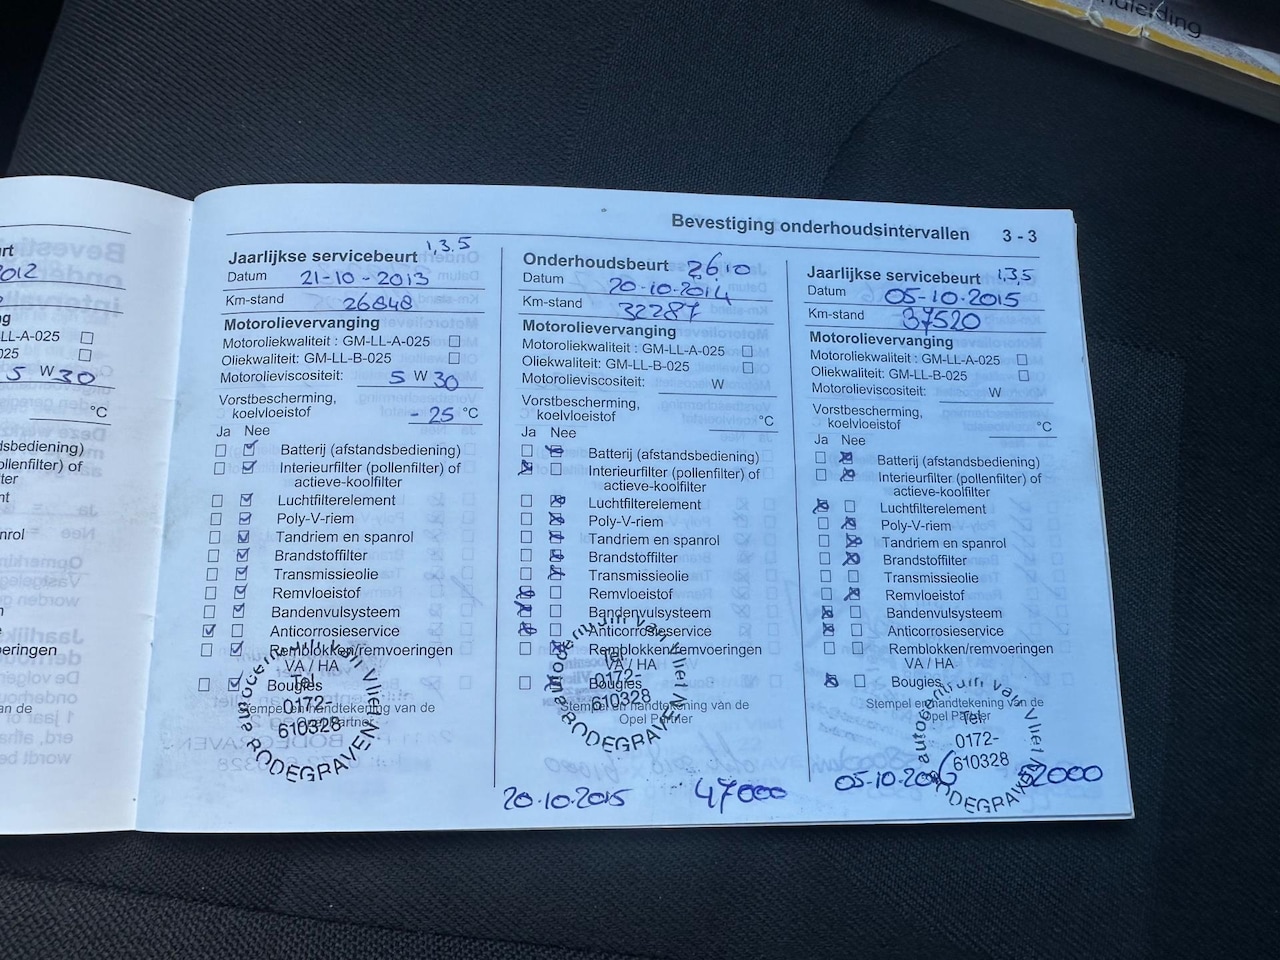 nuleiding
Bevestiging onderhoudsintervallen 3 - 3
rt
2012
g
LL-A-025
025
5 W 30
°C
dsbediening)
ollenfilter) of
ter
nt
nrol
n
e
oeringen
an de
Jaarlijkse servicebeurt 1,3,5
Datum 21-10-2013
Km-stand 26848
Motorolievervanging
Motoroliekwaliteit : GM-LL-A-025
Oliekwaliteit: GM-LL-B-025
Motorolieviscositeit: 5 W 30
Vorstbescherming,
koelvloeistof - 25 °C
Ja Nee
Batterij (afstandsbediening)
Interieurfilter (pollenfilter) of
actieve-koolfilter
Luchtfilterelement
Poly-V-riem
Tandriem en spanrol
Brandstoffilter
Transmissieolie
Remvloeistof
Bandenvulsysteem
Anticorrosieservice
Remblokken/remvoeringen
VA / HA
Bougies
Stempel en handtekening van de
Opel Partner
Autocentrum van Vliet
Tel.
0172-
610328
BODEGRAVEN
Onderhoudsbeurt 2610
Datum 20-10-2014
Km-stand 32287
Motorolievervanging
Motoroliekwaliteit : GM-LL-A-025
Oliekwaliteit: GM-LL-B-025
Motorolieviscositeit: W
Vorstbescherming,
koelvloeistof °C
Ja Nee
Batterij (afstandsbediening)
Interieurfilter (pollenfilter) of
actieve-koolfilter
Luchtfilterelement
Poly-V-riem
Tandriem en spanrol
Brandstoffilter
Transmissieolie
Remvloeistof
Bandenvulsysteem
Anticorrosieservice
Remblokken/remvoeringen
VA / HA
Bougies
Stempel en handtekening van de
Opel Partner
Autocentrum van Vliet
Tel.
0172-
610328
BODEGRAVEN
20.10.2015 47000
Jaarlijkse servicebeurt 1,3,5
Datum 05-10-2015
Km-stand 37520
Motorolievervanging
Motoroliekwaliteit : GM-LL-A-025
Oliekwaliteit: GM-LL-B-025
Motorolieviscositeit: W
Vorstbescherming,
koelvloeistof °C
Ja Nee
Batterij (afstandsbediening)
Interieurfilter (pollenfilter) of
actieve-koolfilter
Luchtfilterelement
Poly-V-riem
Tandriem en spanrol
Brandstoffilter
Transmissieolie
Remvloeistof
Bandenvulsysteem
Anticorrosieservice
Remblokken/remvoeringen
VA / HA
Bougies
Stempel en handtekening van de
Opel Partner
Autocentrum van Vliet
Tel.
0172-
610328
BODEGRAVEN
05-10.2016 52000